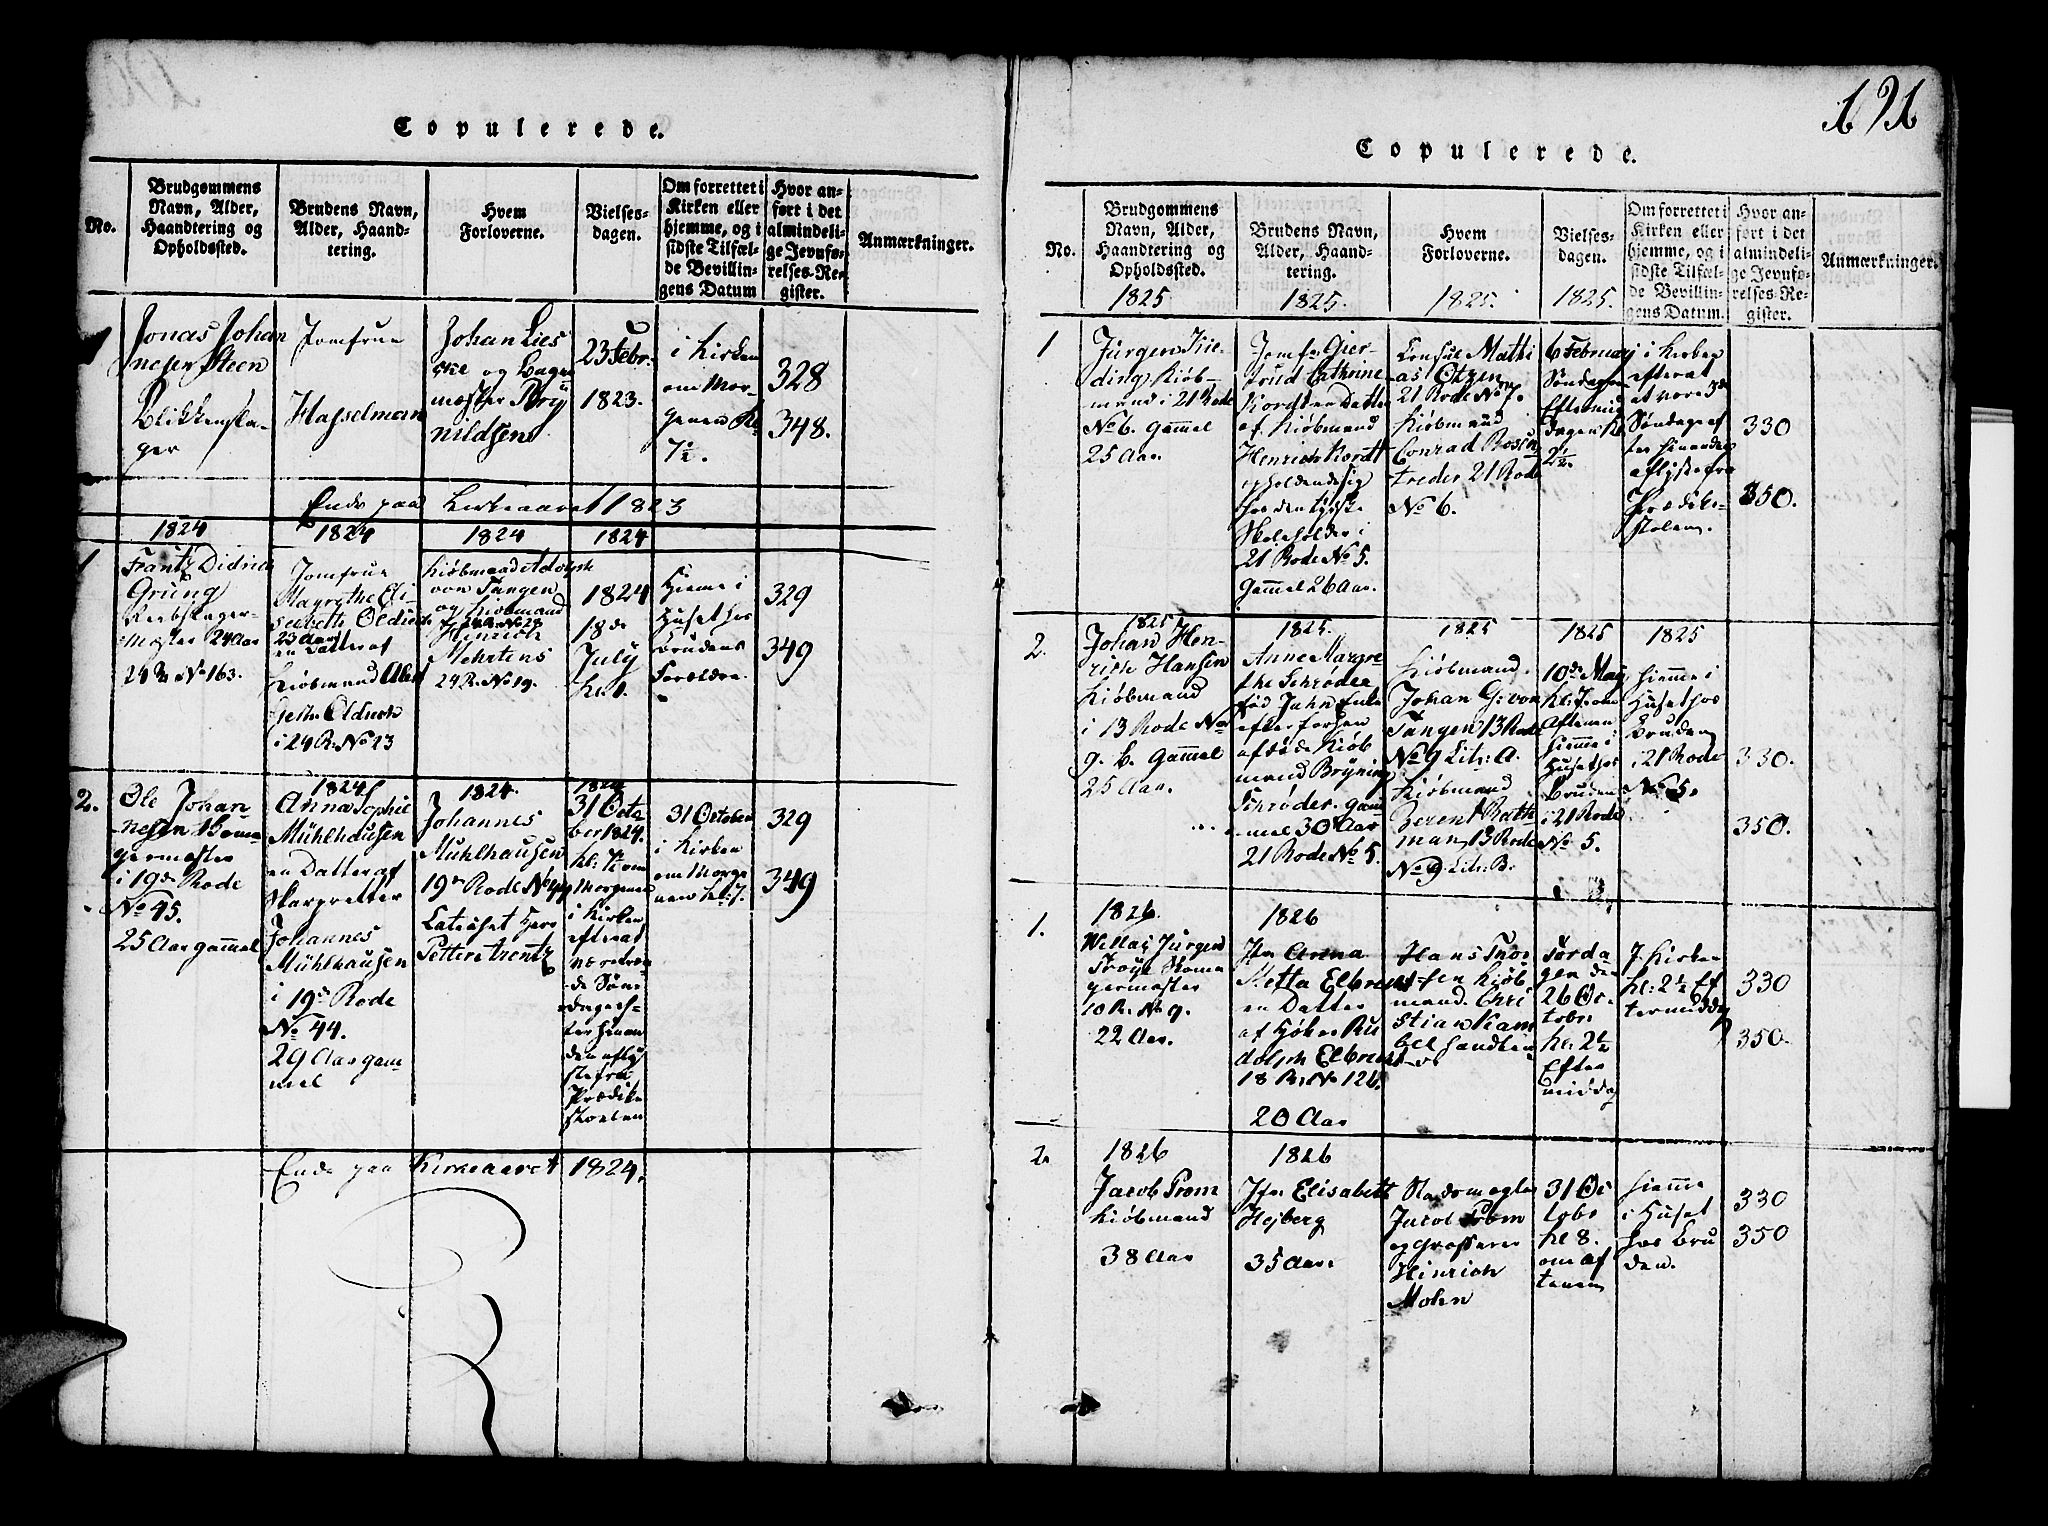 191
Copulerede.
No.
Brudgommens
Navn, Alder,
Haandtering og
Opholdssted.
Brudens Navn,
Alder, Haand-
tering.
Hvem
Forloverne.
Vielses-
dagen.
Om forrettet i
Kirken eller
hjemme, og i
sidste Tilfæl-
de Bevillin-
gens Datum
Hvor an-
ført i det
almindeli-
ge Jevnfø-
relses-Re-
gister.
Anmærkninger.
1
Jonas Johan
nesen Steen
Blikkensla-
ger
Jomfrue
Hasselman
Johan Lies
og
mæster
nildsen
23 Febr.
1823.
i Kirken
om Mor-
genen Kl
7½.
328
348.
Ende paa Kirkeaaret 1823
1824
1824
1824
1824
1
Frantz Didrich
Grung
Reebslager-
Mæster 24 Aar
24 R No 163.
Jomfrue
Magrethe Eli-
sebeth
23 Aar
en Datter af
Kiøbmand
i 24 R. No 23
Kiøbmand Adolph
von Tangen
og Kiøbmand
Hinrich
Mehrtens
24 R. No 19.
1824
18de
July
Kl.
Hieme i
Huset hos
Brudens
Forældre
329
349
2.
Ole Johan-
nesen
germæster
i 19de Rode
No 45.
25 Aar gammel
1824
Anna Sophie
Mühlhausen
en Datter af
Skarpretter
Johannes
Mühlhausen
i 19de Rode
No 44.
29 Aar gam-
mel
1824.
Johannes
Mühlhausen
19de Rode No 44
Petter Arentz
1824
31 Octo
ber 1824.
kl: 7 om
Morgenen
i Kirken
efter at
være tren-
de Søn-
dage ef-
ter hinan
den afly
ste fra
Prædike
stoelen
31 October
i Kirken
om Morge
nen kl: 7.
329
349
Ende paa Kirkeaaret 1824.
Copulerede.
No.
Brudgommens
Navn, Alder,
Haandtering og
Opholdssted.
1825
Brudens Navn,
Alder, Haand-
tering.
1825.
Hvem
Forloverne.
1825.
Vielses-
dagen.
1825.
Om forrettet i
Kirken eller
hjemme, og i
sidste Tilfæl-
de Bevillin-
gens Datum.
Hvor an-
ført i det
almindeli-
ge Jevnfø-
relses-Re-
gister.
Anmærkninger.
1
Jürgen Kie-
ding, Kiøb-
mand i 21 Rode
No 6. Gammel
25 Aar.
Jomfr Gier-
trud Cathrine
Kordt en Datter
af Kiøbmand
Henrich Kordt
opholdende sig
hos den tydske
Skoleholder i
21 Rode No 5.
Gammel 26 Aar.
Consul Mathi
as Otzen
21 Rode No 7.
Kiøbmand
Conrad Rosen
treder 21 Rode
No 6.
6 February
Søndag
Eftermid
dagen Kl
2½.
i Kirken
efter at
at være 3de
Søndage ef
ter hinanden
aflyste fra
Prædike-
stolen.
330
350.
2.
1825
Johan Hen-
rich Hansen
Kiøbmand
i 13 Rode No
9. b. Gammel
25 Aar.
1825.
Anne Margre-
the Schrøder
fød Jahn Enke
efter forhen
afdøde Kiøb
mand Brÿning
Schrøder. gam-
mel 30 Aar
21 Rode No 5.
1825
Kiøbmand
Johan G. von
Tangen 13 Rode
No 9 Litr: A.
Kiøbmand
Berent Rath
man, 13 Rode
No 9 Litr: B.
1825
10de May
Kl. 7 om
Aftenen
hiemme i
Huset hos
Bruden
i 21 Rode
No 5.
1825
hiemme i
Huset hos
Bruden
i 21 Rode
No 5.
330.
350.
1.
1826.
Willas Jürgens
Troÿe Skoma
germester
10 R. No 9.
22 Aar.
1826
Jfr Anna
Metta Elbrecht
en Datter
af Høker Ru
dolph Elbrecht
18 R. No 126.
20 Aar
Hans Thor
sen Kiøb
mand. Chri
stian Kam
bel Handlen
de
Torsda
gen den
26 Oc-
tobr
kl: 2½
Efter
middag
J Kirken
kl: 2½ Ef
termiddag
330
350.
2.
1826
Jacob From
Kiøbmand
38 Aar
1826
Jfr Elisabeth
Hejberg
35 Aar.
Stadsmægler
Jacob From
og Grosserer
Hinrich
Mohn
31 Oc
tobr
kl 8.
om Af
tenen
hiemme
i Huset
hos Bru
den.
330
350